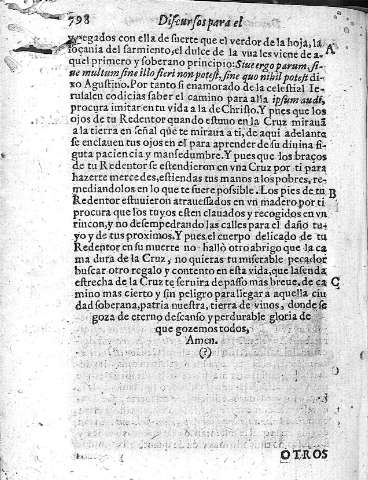 798 Discursos para el
pegados con ella de suerte que el verdor de la hoja, la
loçania del sarmiento, el dulce de la vua les viene de a-
quel primero y soberano principio: Siue ergo parum, si- A
ue multum sine illo fieri non potest, sine quo nihil potest di-
xo Agustino. Por tanto si enamorado de la celestial Ie-
rusalen codicias saber el camino para alla ipsum audi,
procura imitar en tu vida a la de Christo. Y pues que los
ojos de tu Redentor quando estuuo en la Cruz mirauã
a la tierra en señal que te miraua a ti, de aqui adelante
se enclauen tus ojos en el para aprender de su diuina fi-
gura paciencia y mansedumbre. Y pues que los braços
de tu Redentor se estendieron en vna Cruz por ti para
hazerte mercedes, estiendas tus manos a los pobres, re-
mediandolos en lo que te fuere possible. Los pies de tu B
Redentor estuuieron atrauessados en vn madero por ti
procura que los tuyos esten clauados y recogidos en vn
rincon, y no desempedrando las calles para el daño tu-
yo y de tus proximos. Y pues el cuerpo delicado de tu
Redentor en su muerte no hallò otro abrigo que la ca
ma dura de la Cruz, no quieras tu miserable pecador
buscar otro regalo y contento en esta vida, que la senda
estrecha de la Cruz te seruira de passo mas breue, de ca C
mino mas cierto y sin peligro para llegar a aquella ciu
dad soberana, patria nuestra, tierra de viuos, donde se
goza de eterno descanso y perdurable gloria de
que gozemos todos,
Amen.
(?)
OTROS